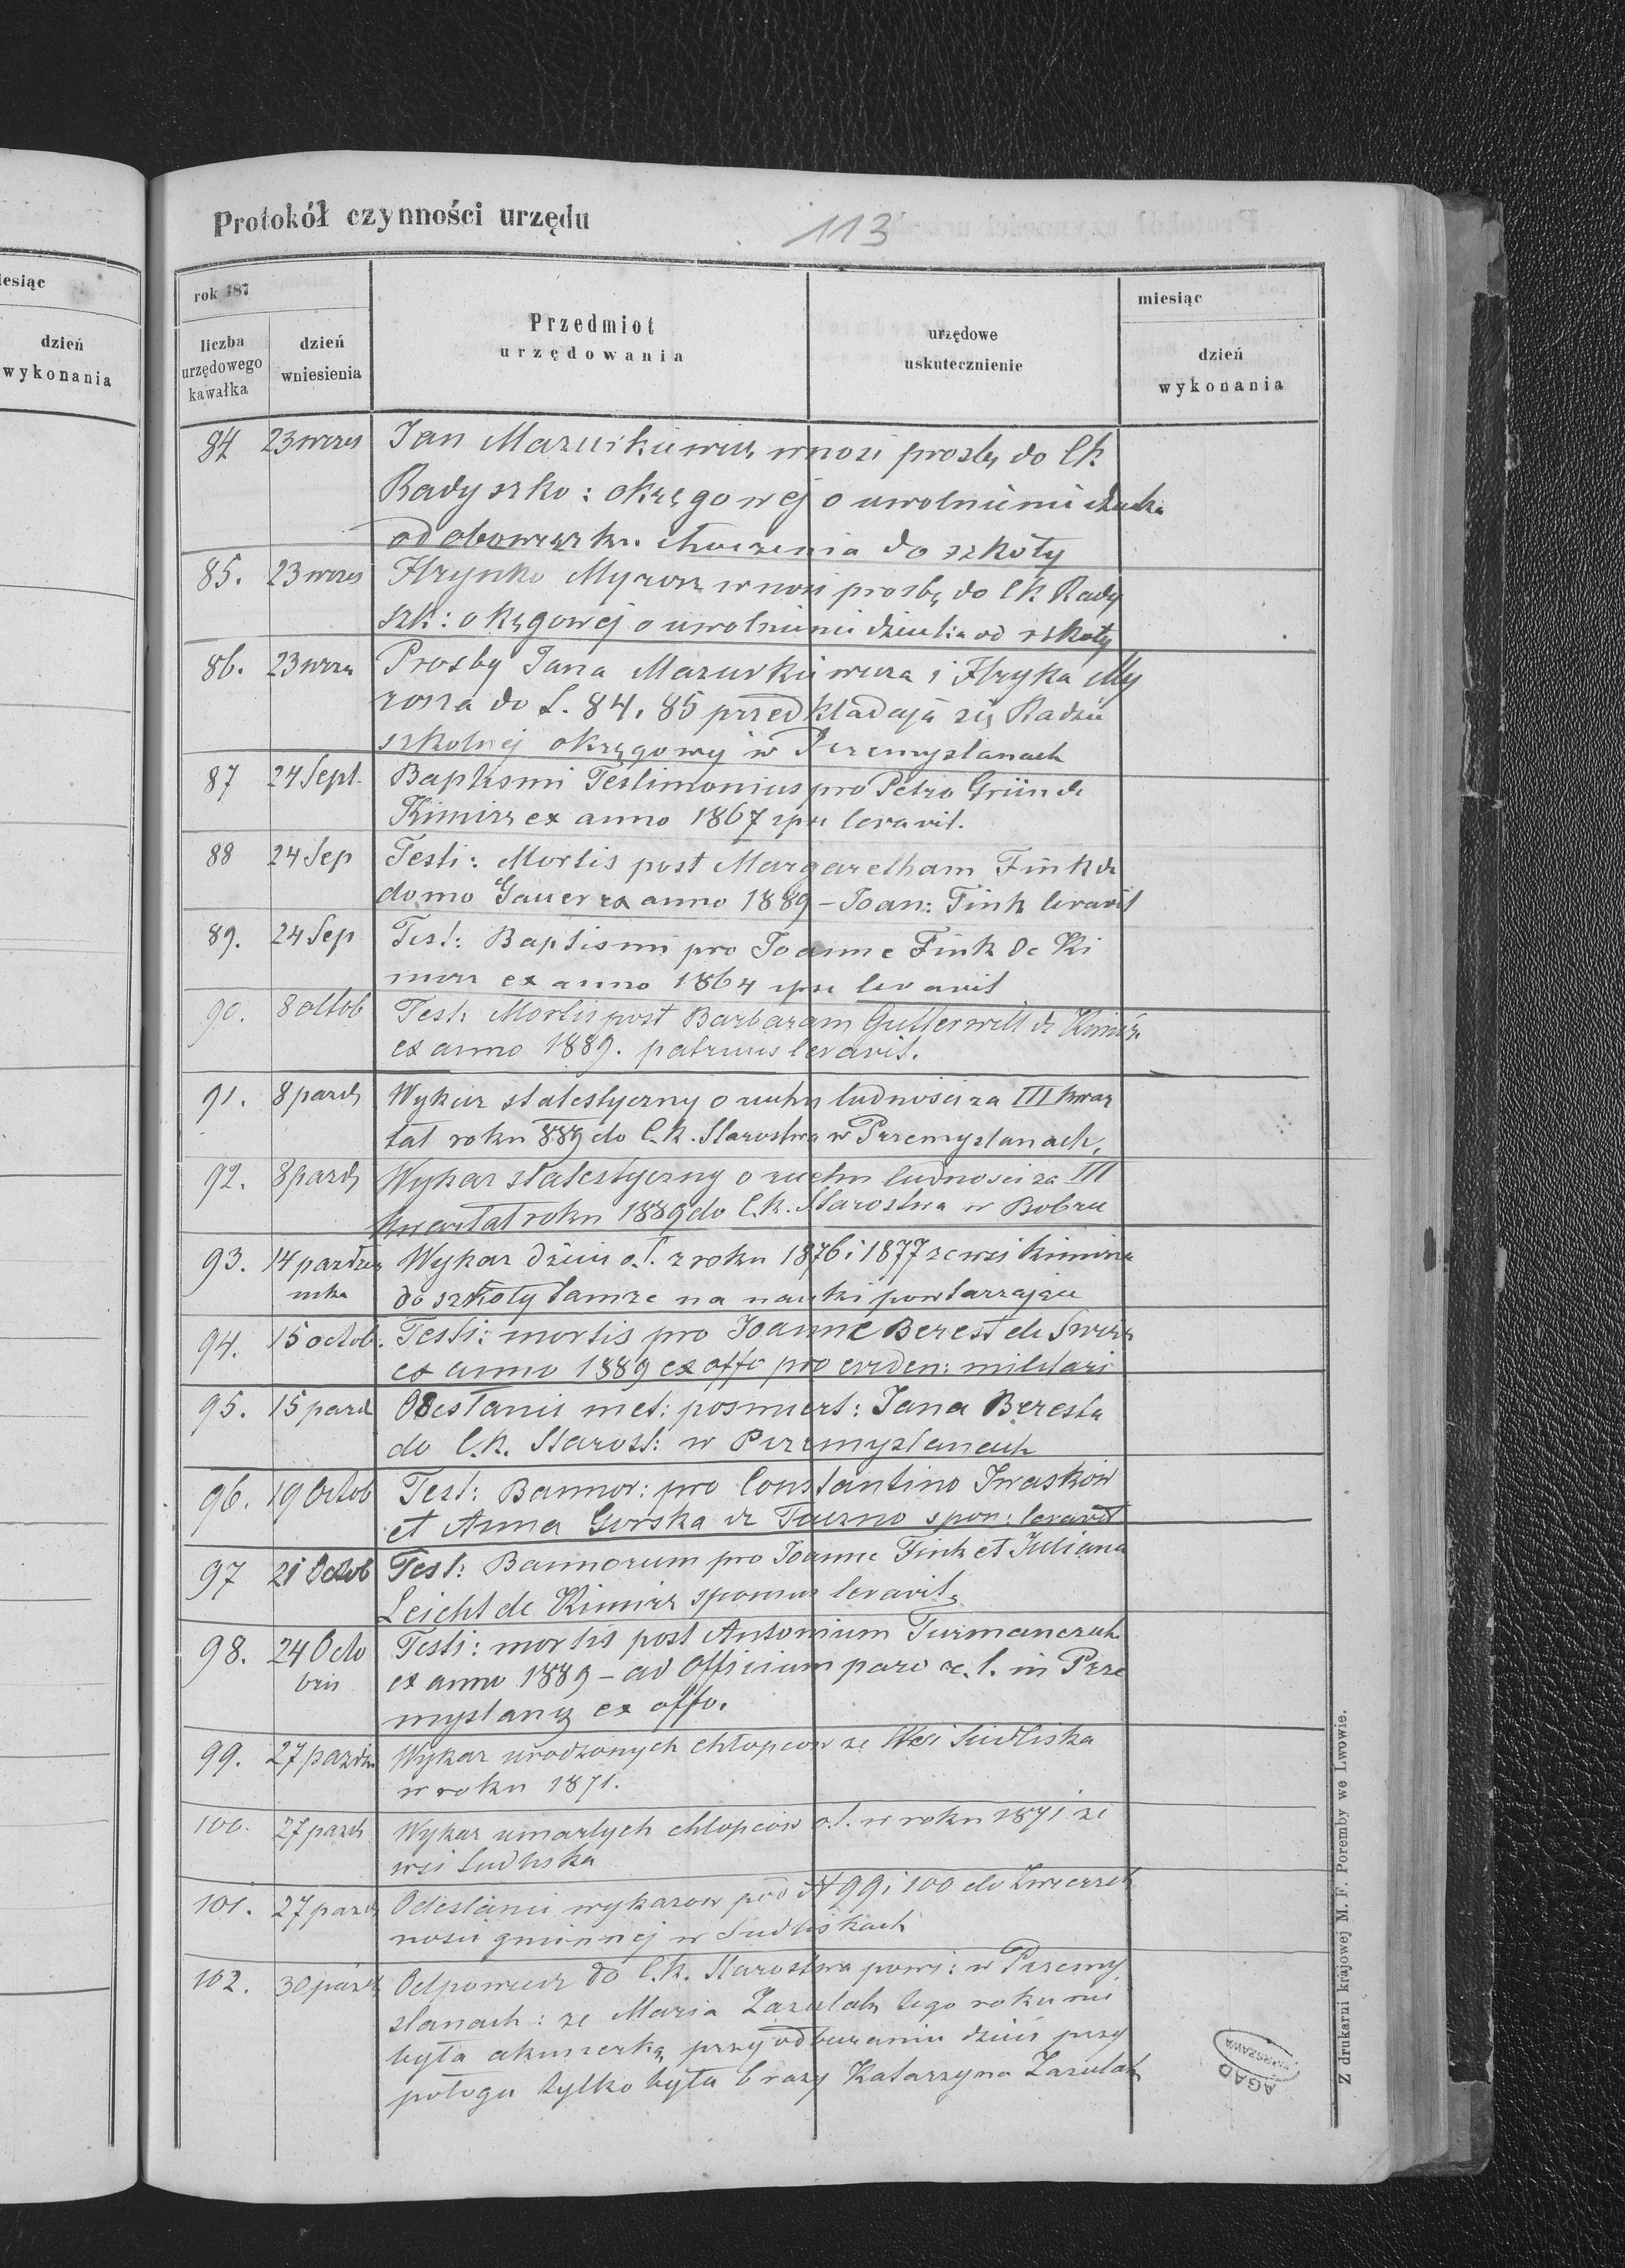 iesiąc
dzień
wykonania
Protokół czynności urzędu
113
rok 187
miesiąc
liczba
urzędowego
kawałka
dzień
wniesienia
Przedmiot
urzędowania
urzędowe
uskutecznienie
dzień
wykonania
84 23 wrzes Jan Mazurkiewicz wnosi prosbę do Ck
Rady szko: okręgowej o uwolnienie dziecka
od obowiązku chodzenia do szkoły
85. 23 wrzes Hrynko Myrosz wnosi prosbę do Ck Rady
szk: okęgowej o uwolnienie dziecka od szkoły
86. 23 wrze Prosby Jana Mazurkiewicza i Hryka My
rosza do L. 84, 85 przedkładają się Radzie
szkolnej okręgowej w Przemyslanach
87 24 Sept. Baptismi Testimonium pro Petro Grün de
Kimirz ex anno 1867 ipse levavit.
88 24 Sep Testi: Mortis post Margaretham Fink de
domo Gauer ex anno 1889 - Joan: Fink levavit
89. 24 Sep Test: Baptismi pro Joanne Fink de Ki
mirz ex anno 1864 ipse levavit
90. 8 oktob Test: Mortis post Barbaram Gutterwill de Kimirz
ex anno 1889. patruus levavit.
91. 8 pazdz Wykaz statestyczny o ruchu ludnosci za III kwar
tał roku 889 do C.K. Starostwa w Przemyslanach,
92. 8 pazdz Wykaz statestyczny o ruchu ludnosci za III
kwartał roku 1889 do C.K. Starostwa w Bobrce
93. 14 pazdzier
nika
Wykaz dzieci o.ł. z roku 1876 i 1877 ze wsi Kimirza
do szkoły tamze na nauki powtarzające
94. 15 octob. Testi: mortis pro Joanne Berest de Swirz
ex anno 1889 ex offo pro eviden: militari
95. 15 pazd Odesłanie met: posmiert: Jana Beresta
do C.K. Starost: w Przemyslanach
96. 19 Octob Test: Bannor: pro Constantino Iwasków
et Anna Gorska de Tuczno spon: levavit
97 21 Octob Test: Bannorum pro Joanne Fink et Juliana
Leicht de Kimirz sponsus levavit,
98. 24 Octo
bris
Testi: mortis post Antonium Turmanczuk
ex anno 1889 - ad Officium paro r.l. in Prze
myslany ex offo.
99. 27 pazdz Wykaz urodzonych chłopcow ze Wsi Siedliska
w roku 1871.
100. 27 pazdz Wykaz umarłych chłopców o.ł. w roku 1871 ze
wsi Siedliska
101. 27 pazdz Odesłanie wykazow pod N 99 i 100 do Zwierzch
nosci gminnej w Siedliskach
102. 30 pazdz Odpowiedz do C.K. Starostwa powi: w Przemy
slanach: ze Maria Zazulak tego roku nie
była akuszerką przy odbieraniu dzieci przy
połogu tylko była 6 razy Katarzyna Zazulak
Z drukarni krajowej M. F. Poremby we Lwowie.
AGAD
WARSZAWA